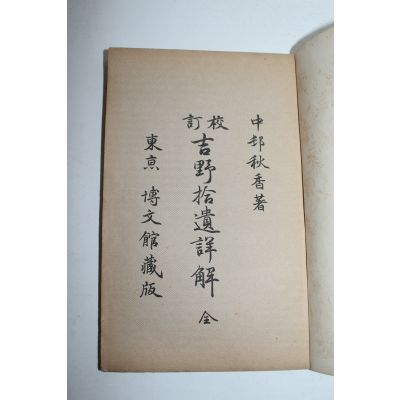 中邨秋香著
校訂
吉野拾遺詳解 全
東京 博文館藏版